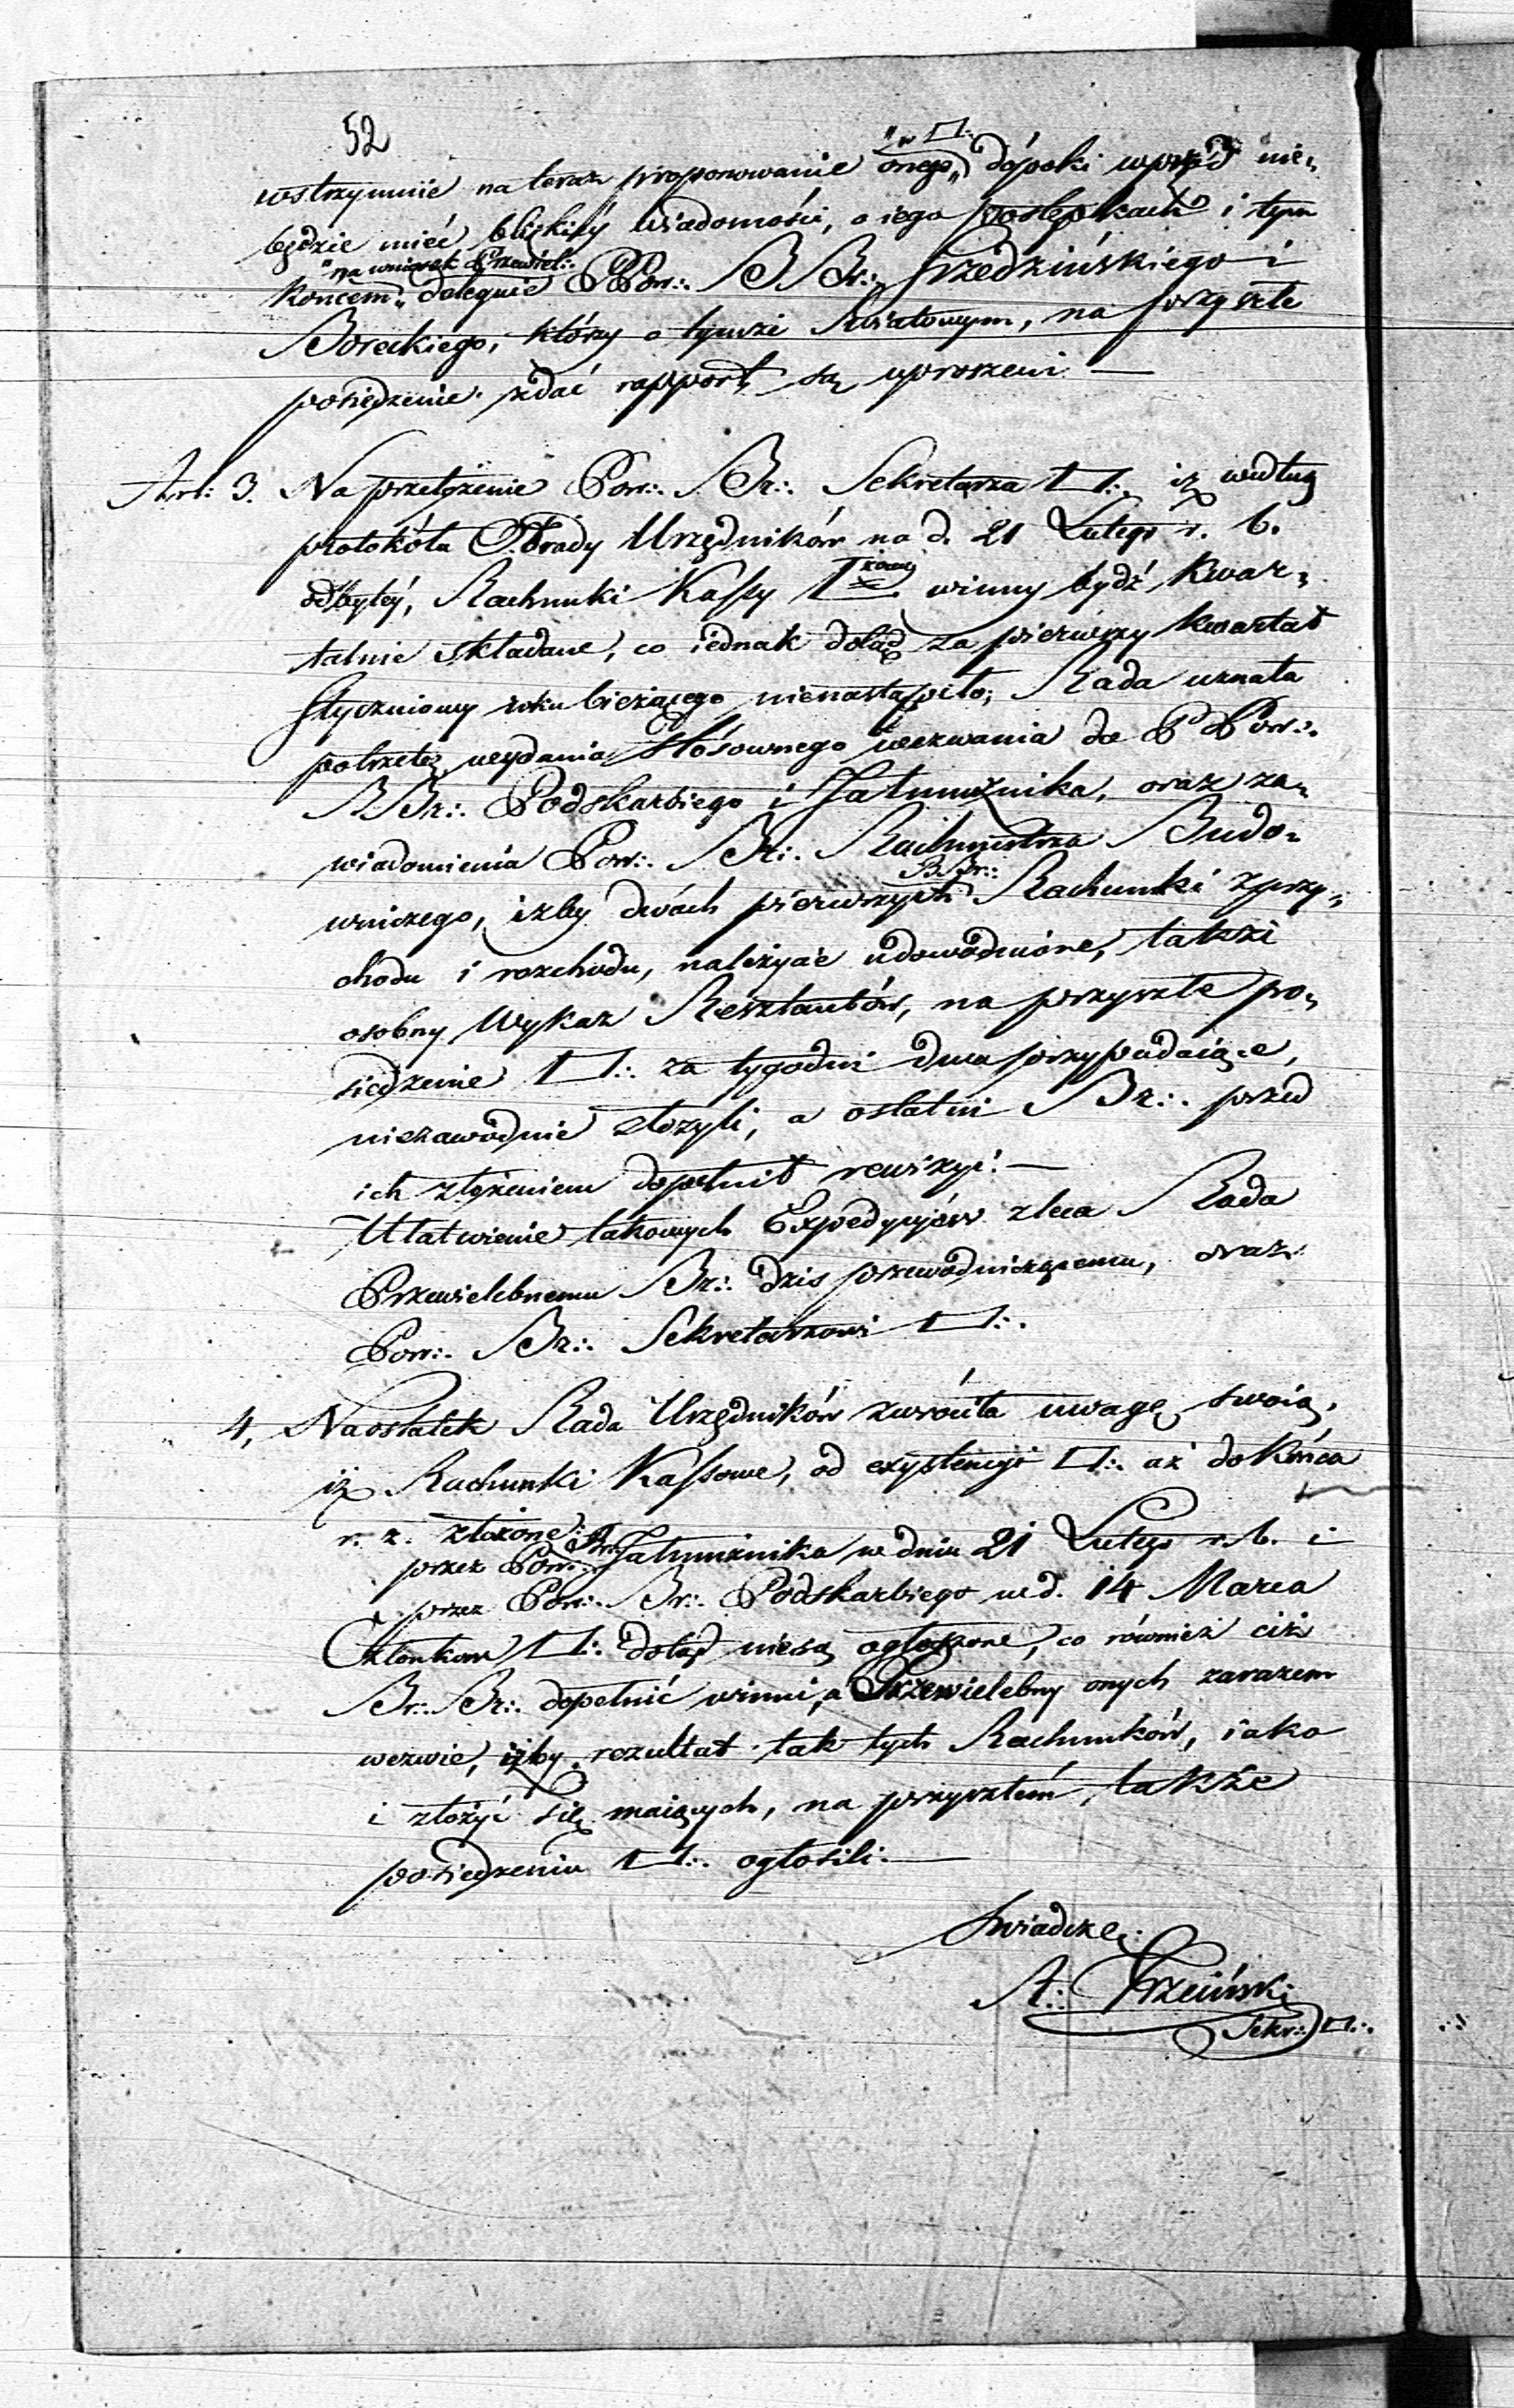 52
wstrzymuie na teraz proponowanie onego „w □∴„ dópóki wprzód nie„
będzie mieć bliższéy wiadomości, o iego postępkach i tym
końcem „na wniosek Przewiel∴„ deleguie PPow∴ BBr∴ Trzedzińskiego i
Boreckiego, którzy o tymże Światowym, na przyszłe
posiedzenie zdać rapport są uproszeni —
Art: 3. Na przełożenie Pow∴ Br∴ Sekretarza □∴ iż według
protokółu Obrady Urzędników na d. 21 Lutego r. b.
odbytéy, Rachunki Kassy □żowey winny bydź kwar„
talnie składane, co iednak dotąd za pierwszy kwartał
Styczniowy roku bieżącego nienastąpiło; Rada uznała
potrzebę wydania stósownego wezwania do PPow∴
BBr∴ Podskarbiego i Jałmużnika, oraz za„
wiadomienia Pow∴ Br∴ Rachmistrza Budo„
wniczego, iżby dwóch pierwszych BBr∴ Rachunki z przy„
chodu i rozchodu, należycie udowodnione, także
osobny Wykaz Resztantów, na przyszłe po„
siedzenie □∴ za tygodni dwa przypadaiące,
niezawodnie złożyli, a ostatni Br∴ przed
ich złożeniem dopełnił rewizyi. —
Ułatwienie takowych Expedycyiów zleca Rada
Przewielebnemu Br∴ dziś przewodniczącemu, oraz
Pow∴ Br∴ Sekretarzowi □∴
4, Naostatek Rada Urzędników zwróciła uwagę swoią,
iż Rachunki Kassowe, od exystencyi □∴ aż do końca
r. z. złożone:
przez Pow∴ Br∴ Jałmużnika w dniu 21 Lutego r. b. i
przez Pow∴ Br∴ Podskarbiego w d. 14 Marca
Członkom □∴ dotąd niesą ogłoszone, co również ciż
Br∴ Br∴ dopełnić winni, a Przewielebny onych zarazem
wezwie, iżby rezultat tak tych Rachunków, iako
i złożyć się maiących, na przyszłém także
posiedzeniu □∴ ogłosili. —
Świadczę:
A: Trzciński
Sekr∴ □∴